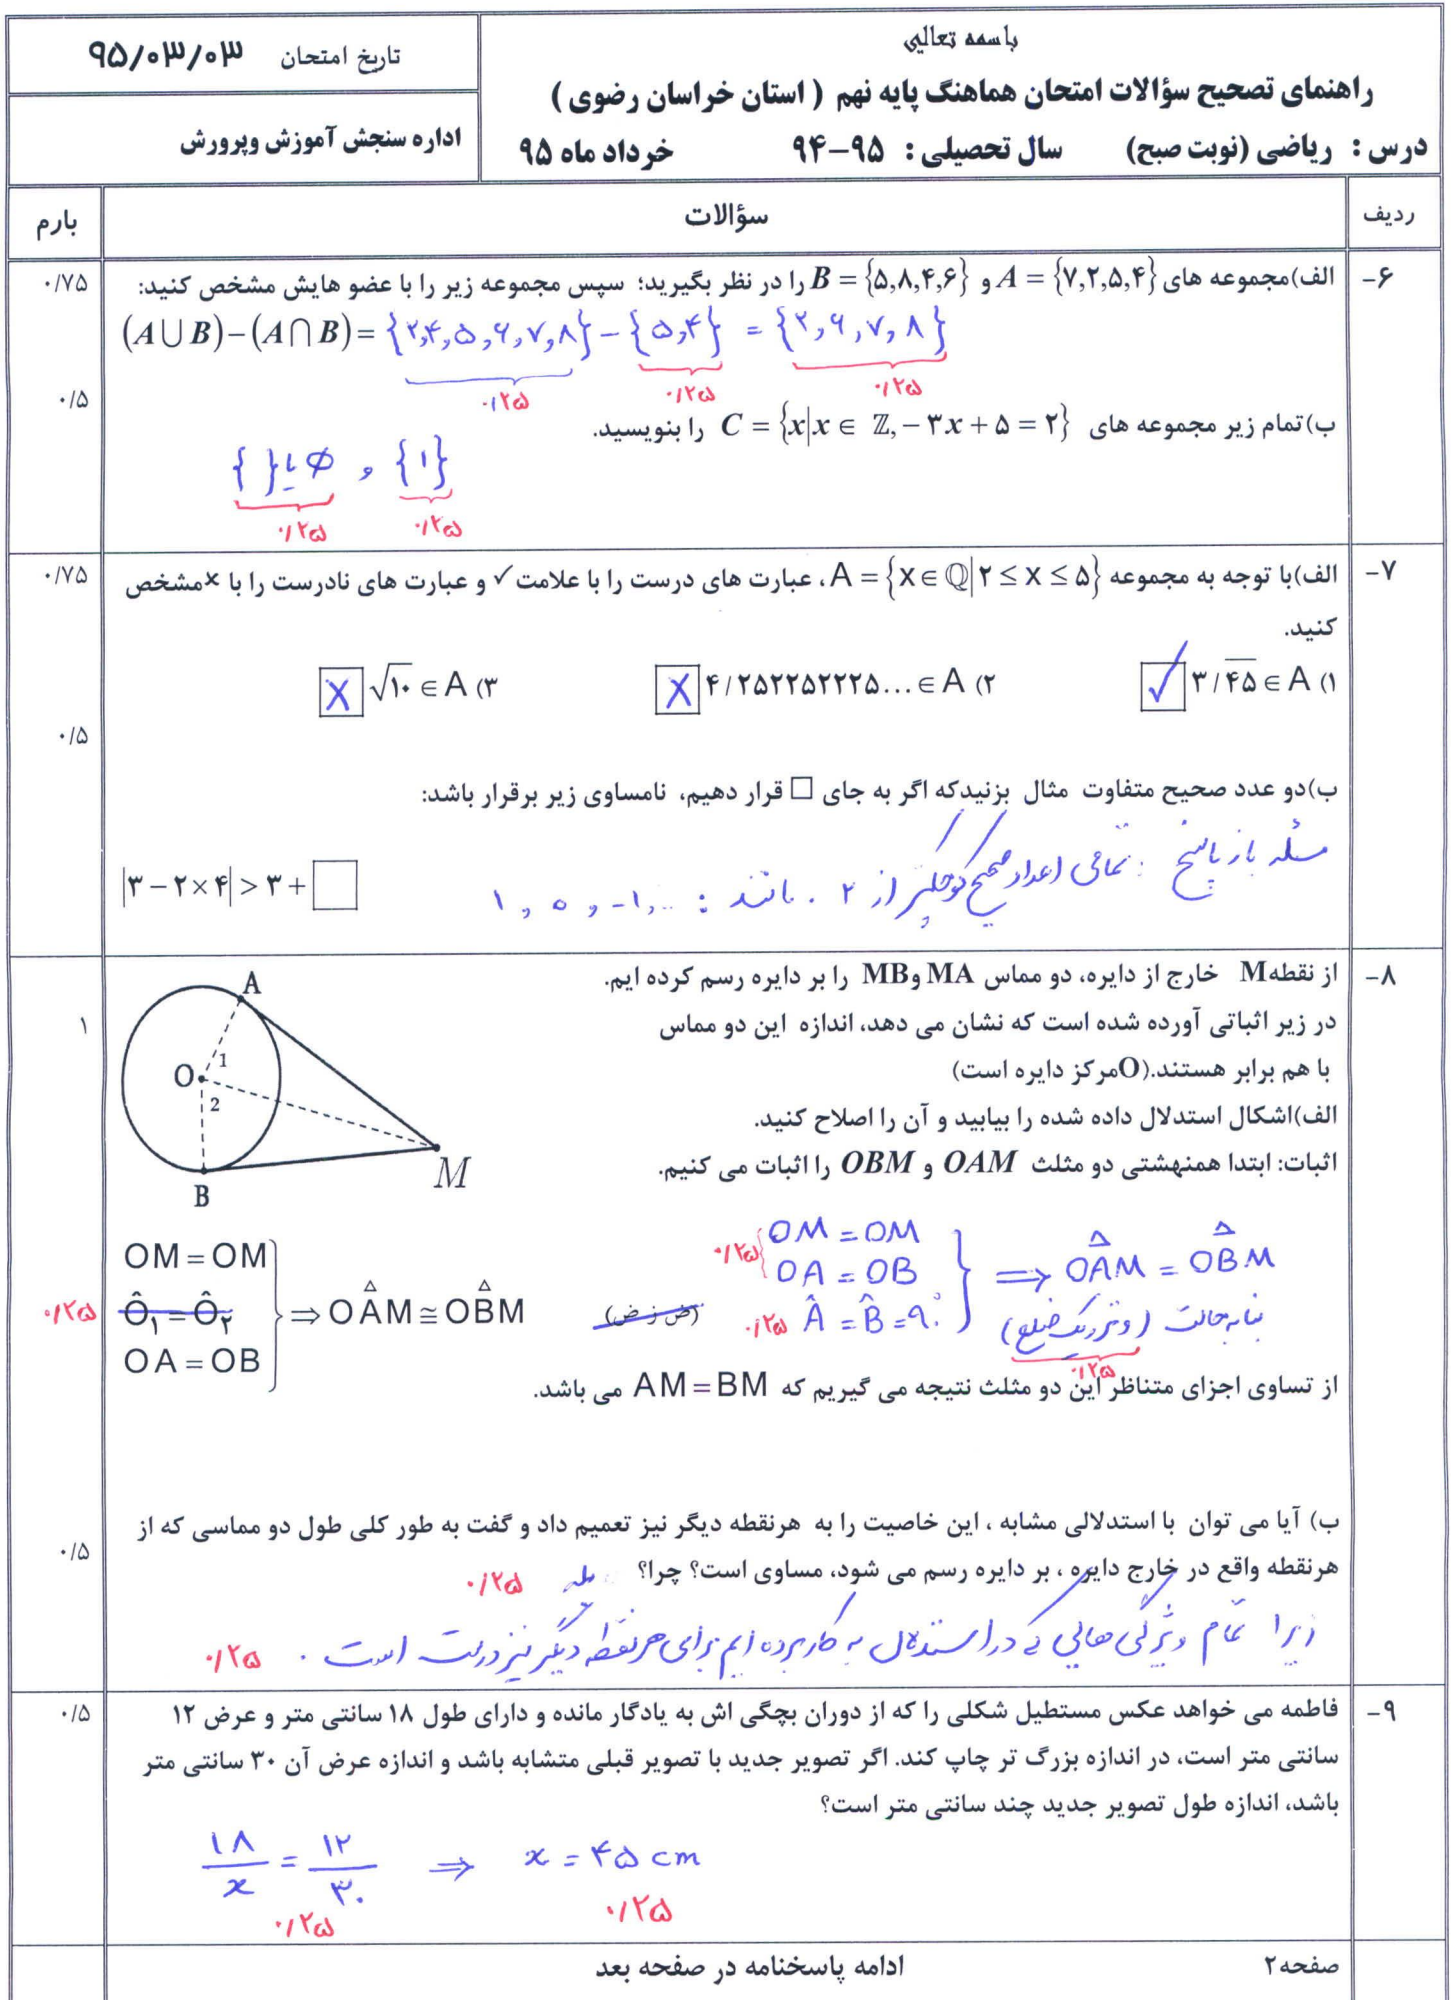 باسمه تعالی
راهنمای تصحیح سؤالات امتحان هماهنگ پایه نهم ( استان خراسان رضوی )
درس : ریاضی (نوبت صبح) سال تحصیلی : ۹۵-۹۴ خرداد ماه ۹۵
تاریخ امتحان ۹۵/۰۳/۰۳
اداره سنجش آموزش وپرورش
ردیف سؤالات بارم
۶- الف)مجموعه های A = {۷,۲,۵,۴} و B = {۵,۸,۴,۶} را در نظر بگیرید؛ سپس مجموعه زیر را با عضو هایش مشخص کنید: ۰/۷۵
(A∪B)−(A∩B)= {۲,۴,۵,۶,۷,۸} − {۵,۴} = {۲,۶,۷,۸}
۰/۲۵ ۰/۲۵ ۰/۲۵
ب)تمام زیر مجموعه های C = {x|x ∈ ℤ, −۳x + ۵ = ۲} را بنویسید. ۰/۵
{ } یا ∅ و {۱}
۰/۲۵ ۰/۲۵
۷- الف)با توجه به مجموعه A = {x∈ℚ|۲ ≤ x ≤ ۵}، عبارت های درست را با علامت✓ و عبارت های نادرست را با ×مشخص ۰/۷۵
کنید.
۱) ۳/۴۵̅ ∈ A ✓ ۲) ۴/۲۵۲۲۵۲۲۲۵... ∈ A X ۳) √۱۰ ∈ A X
۰/۵
ب)دو عدد صحیح متفاوت مثال بزنیدکه اگر به جای □ قرار دهیم، نامساوی زیر برقرار باشد:
مسئله باز پاسخ : تمامی اعداد صحیح کوچکتر از ۲ . مانند : ... ,۱ , ۰ , -۱
|۳ − ۲×۴| > ۳ + □
۸- از نقطهM خارج از دایره، دو مماس MA وMB را بر دایره رسم کرده ایم.
در زیر اثباتی آورده شده است که نشان می دهد، اندازه این دو مماس ۱
با هم برابر هستند.(Oمرکز دایره است)
الف)اشکال استدلال داده شده را بیابید و آن را اصلاح کنید.
اثبات: ابتدا همنهشتی دو مثلث OAM و OBM را اثبات می کنیم.
A
O 1
2
B
M
OM = OM
Ô₁ = Ô₂ ۰/۲۵
OA = OB
⇒ OÂM ≅ OB̂M (ض ز ض)
OM = OM
OA = OB ۰/۲۵
Â = B̂ = ۹۰° ۰/۲۵
⇒ OAM = OBM
بنا به حالت (وتر و یک ضلع)
۰/۲۵
از تساوی اجزای متناظر این دو مثلث نتیجه می گیریم که AM = BM می باشد.
ب) آیا می توان با استدلالی مشابه ، این خاصیت را به هرنقطه دیگر نیز تعمیم داد و گفت به طور کلی طول دو مماسی که از ۰/۵
هرنقطه واقع در خارج دایره ، بر دایره رسم می شود، مساوی است؟ چرا؟ بله ۰/۲۵
زیرا تمام ویژگی هایی که در استدلال به کار برده ایم برای هر نقطه دیگر نیز درست است . ۰/۲۵
۹- فاطمه می خواهد عکس مستطیل شکلی را که از دوران بچگی اش به یادگار مانده و دارای طول ۱۸ سانتی متر و عرض ۱۲ ۰/۵
سانتی متر است، در اندازه بزرگ تر چاپ کند. اگر تصویر جدید با تصویر قبلی متشابه باشد و اندازه عرض آن ۳۰ سانتی متر
باشد، اندازه طول تصویر جدید چند سانتی متر است؟
۱۸/x = ۱۲/۳۰ ⇒ x = ۴۵ cm
۰/۲۵ ۰/۲۵
صفحه۲ ادامه پاسخنامه در صفحه بعد